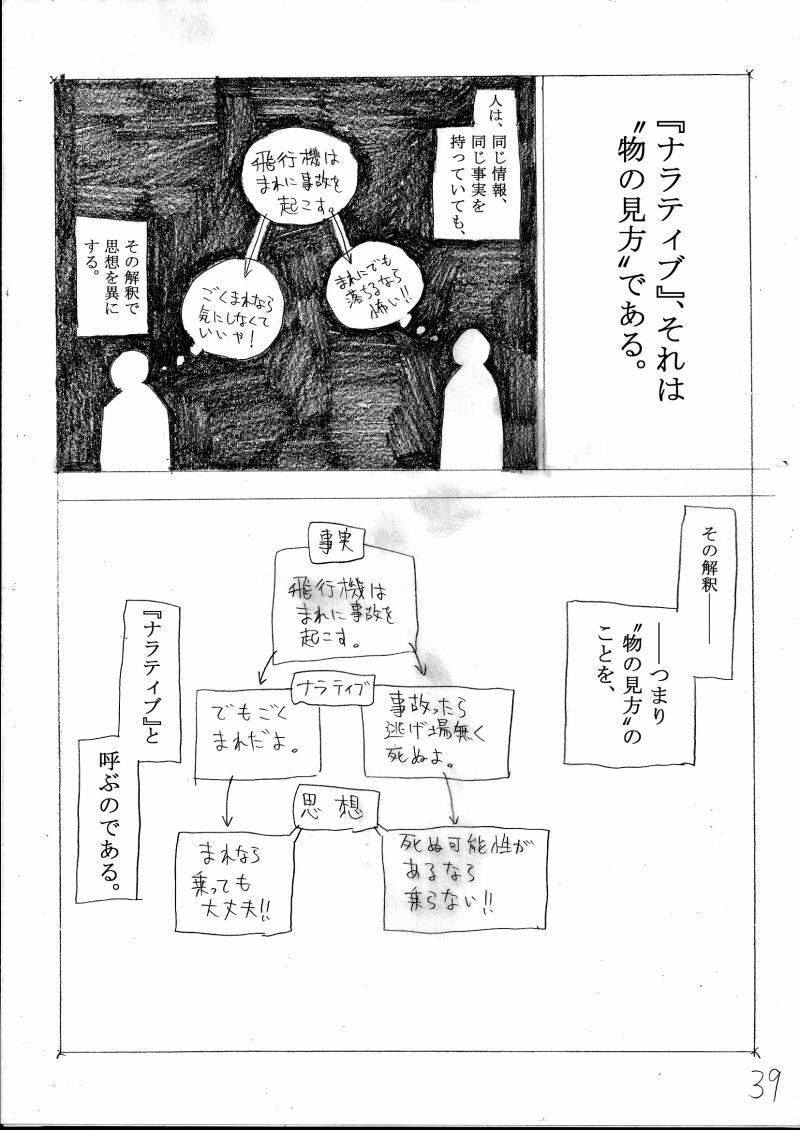 『ナラティブ』、それは
〝物の見方〟である。
人は、同じ情報、
同じ事実を
持っていても、
飛行機は
まれに事故を
起こす。
まれにでも
落ちるなら
怖い!!
ごくまれなら
気にしなくて
いいや!
その解釈で
思想を異に
する。
その解釈――
――つまり
〝物の見方〟の
ことを、
事実
飛行機は
まれに事故を
起こす。
ナラティブ
事故ったら
逃げ場無く
死ぬよ。
でもごく
まれだよ。
思想
死ぬ可能性が
あるなら
乗らない!!
まれなら
乗っても
大丈夫!!
『ナラティブ』と
呼ぶのである。
39